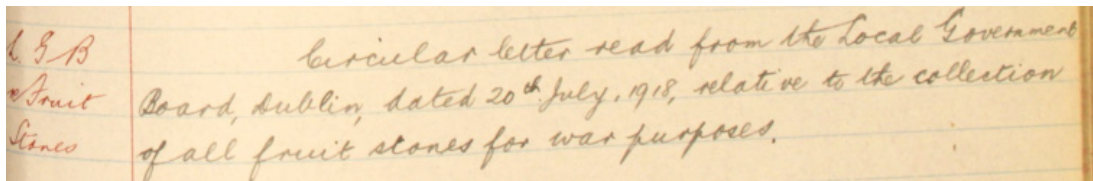 L. G B
re Fruit
Stones
Circular letter read from the Local Government
Board, Dublin, dated 20th July, 1918, relative to the collection
of all fruit stones for war purposes.